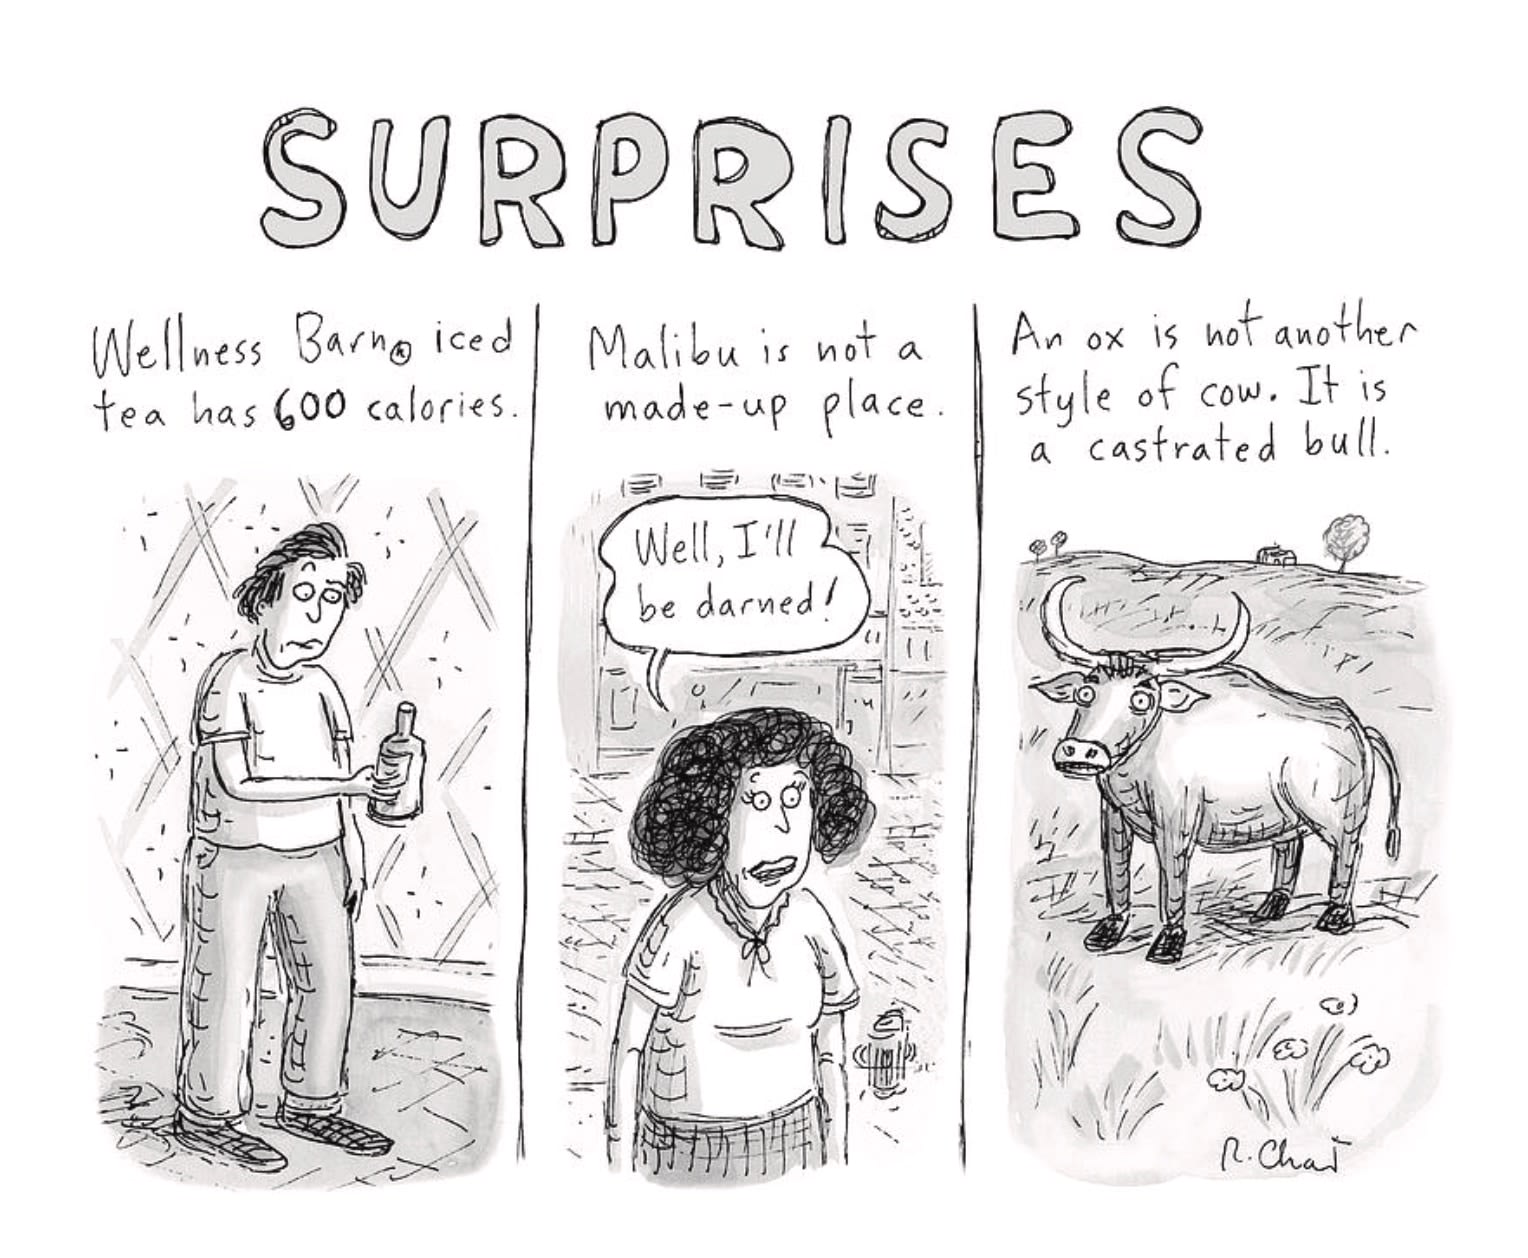 SURPRISES
Wellness Barn® iced
tea has 600 calories.
Malibu is not a
made-up place.
Well, I'll
be darned!
An ox is not another
style of cow. It is
a castrated bull.
R. Chast